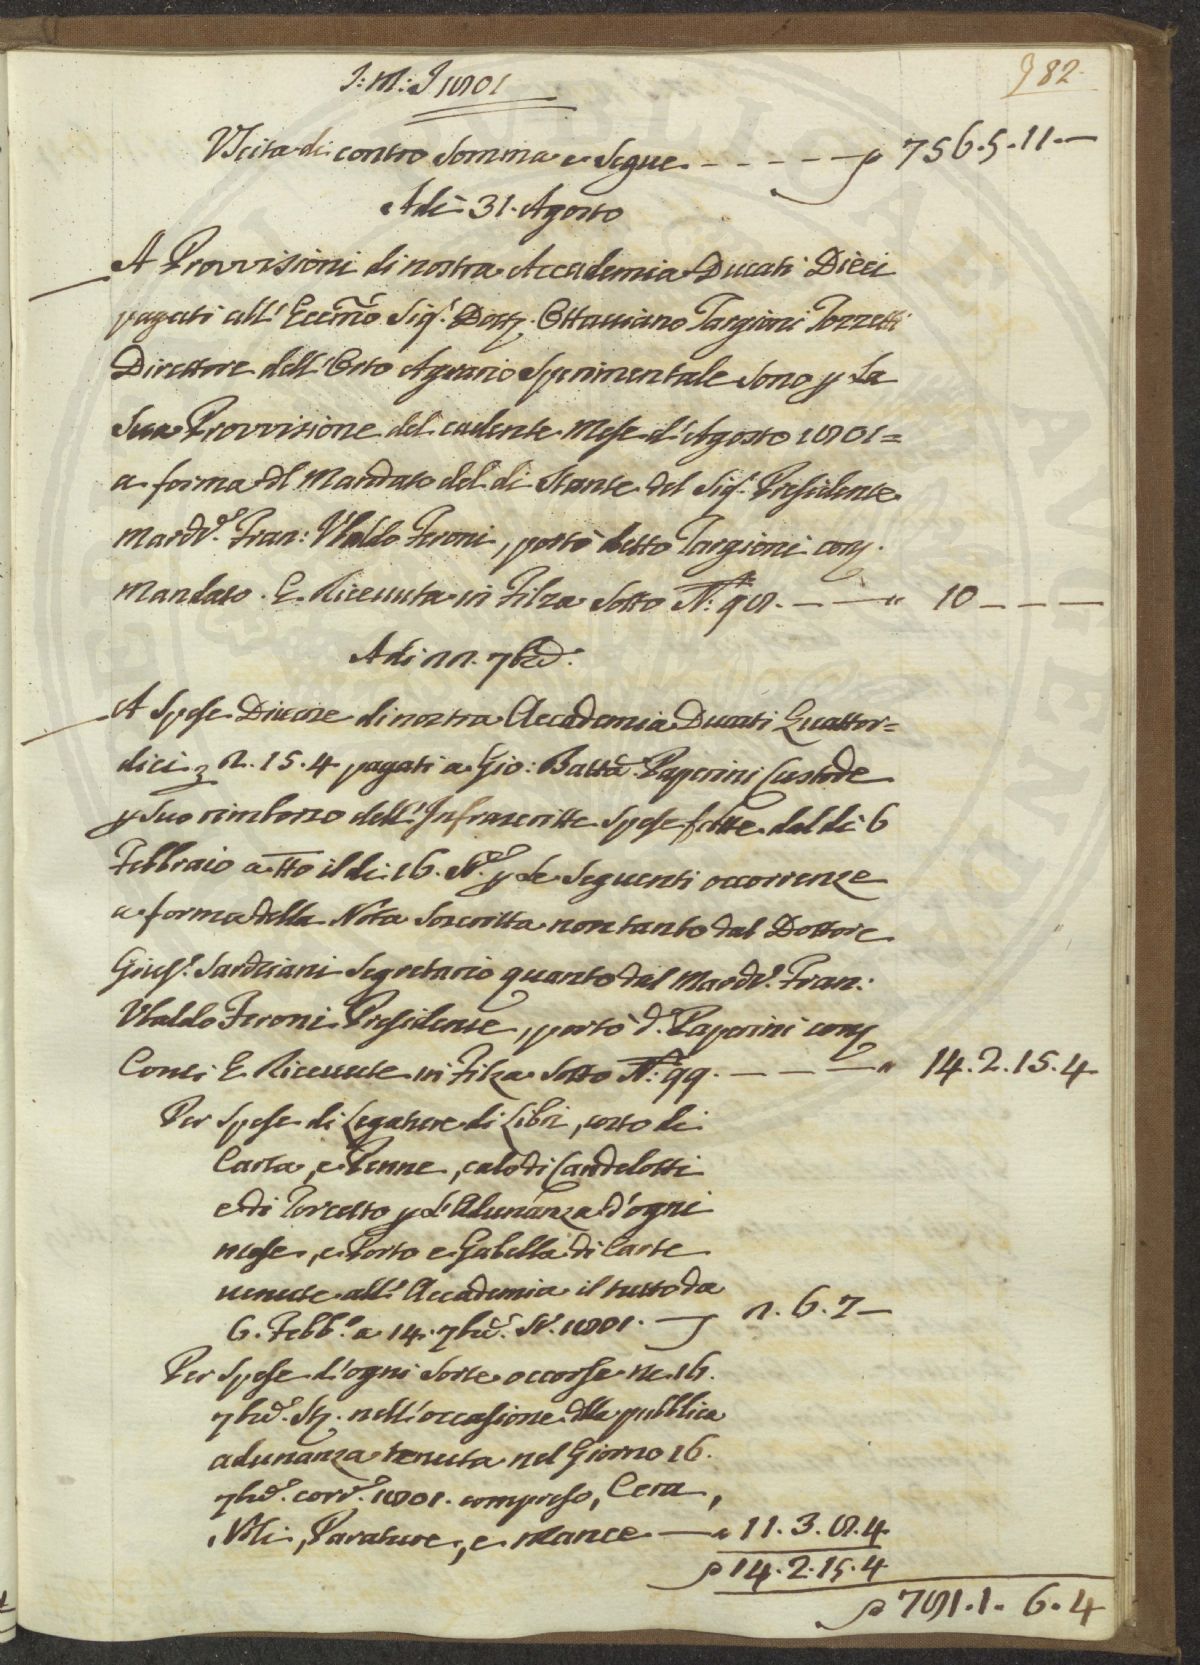 J: M: J 1801
982
Uscita di contro Somma e Segue - - - - - 756.5.11.-
Adì 31. Agosto
A Provvisioni di nostra Accademia Ducati Dieci
pagati all' Eccmo Sig.r Dott. Ottaviano Targioni Tozzetti
Direttore dell' Orto Agrario Sperimentale sono p la
sua Provvisione del cadente Mese d'Agosto 1801=
a forma del Mandato del dì Stante del Sig.r Presidente
March.e Fran: Ubaldo Feroni, portò detto Targioni cont.
Mandato. E. Ricevuta in Filza Sotto N: 98. - - " 10 - - -
Adì 22. 7bre
A Spese Diverse di nostra Accademia Ducati Quattor=
dici 2.15.4 pagati a Gio: Batta Paperini Custode
p suo rimborso dell' Infrascritte Spese fatte dal dì 6
Febbraio a tto il dì 16. St.e p le seguenti occorrenze
a forma della Nota Soscritta non tanto dal Dottore
Gius.e Sarchiani Segretario quanto dal March.e Fran:
Ubaldo Feroni Presidente, portò d. Paperini cont.
Conti E. Ricevute in Filza Sotto N: 99. - - - " 14.2.15.4
Per Spese di Legature di Libri, costo di
Carta, e Penne, calo di Candelotti
e di Torcetto p l'Adunanza d'ogni
mese, e Porto e Gabella di Carte
venute all' Accademia il tutto da
6. Febb.o a 14. 7bre St. 1801. - 2.6.7-
Per Spese d'ogni Sorte occorse ne 16.
7bre St. nell'occasione della pubblica
adunanza tenuta nel Giorno 16.
7bre corr.e 1801. compreso, Cera,
Noli, Parature, e Mance - " 11.3.8.4
14.2.15.4
781.1.6.4